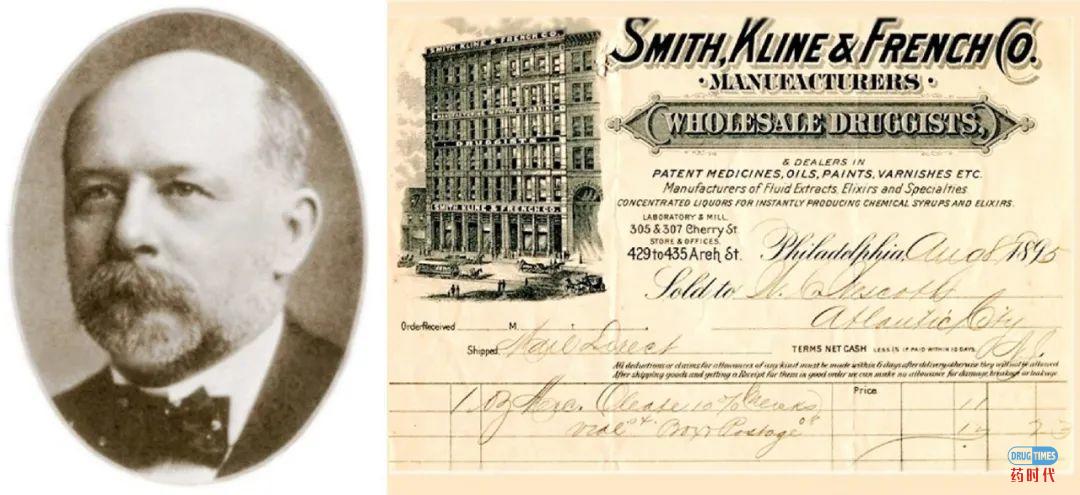 SMITH, KLINE & FRENCH CO.
MANUFACTURERS
WHOLESALE DRUGGISTS,
& DEALERS IN
PATENT MEDICINES, OILS, PAINTS, VARNISHES ETC.
Manufacturers of Fluid Extracts, Elixirs and Specialties
CONCENTRATED LIQUORS FOR INSTANTLY PRODUCING CHEMICAL SYRUPS AND ELIXIRS.
SMITH KLINE & FRENCH CO.
DRUGGISTS
SMITH KLINE & FRENCH CO.
LABORATORY & MILL.
305 & 307 Cherry St.
STORE & OFFICES.
429 to 435 Arch St.
Philadelphia, Aug 8 1895
Sold to W.
Atlantic City
Order Received M.
Shipped Mail Direct
TERMS NET CASH LESS 1% IF PAID WITHIN 10 DAYS.
All deductions or claims for allowances of any kind must be made within 5 days after delivery otherwise they will not be allowed
After shipping goods and getting a Receipt for them in good order we can make no allowance for damage, breakage or leakage.
Price
1 oz Merc. Oleate 10% 11
vial 04 Box & Postage 08 12 23
DRUG TIMES
药时代